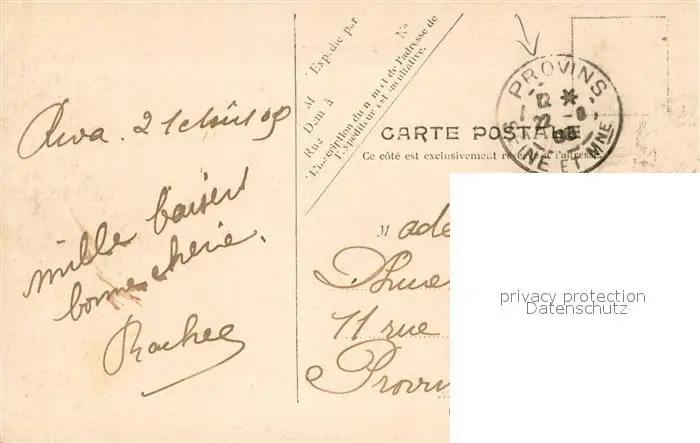 Expédie par
M
N°
Dem à
Rue
L'inscription du nom et de l'adresse de
l'Expéditeur est facultative.
PROVINS
12 *
22 - 8
SEINE ET MNE
CARTE POSTALE
Ce côté est exclusivement réservé à l'adresse.
21 août 09
mille baisers
bonne chérie.
Rachel
M ade
11 rue
Provin
privacy protection
Datenschutz